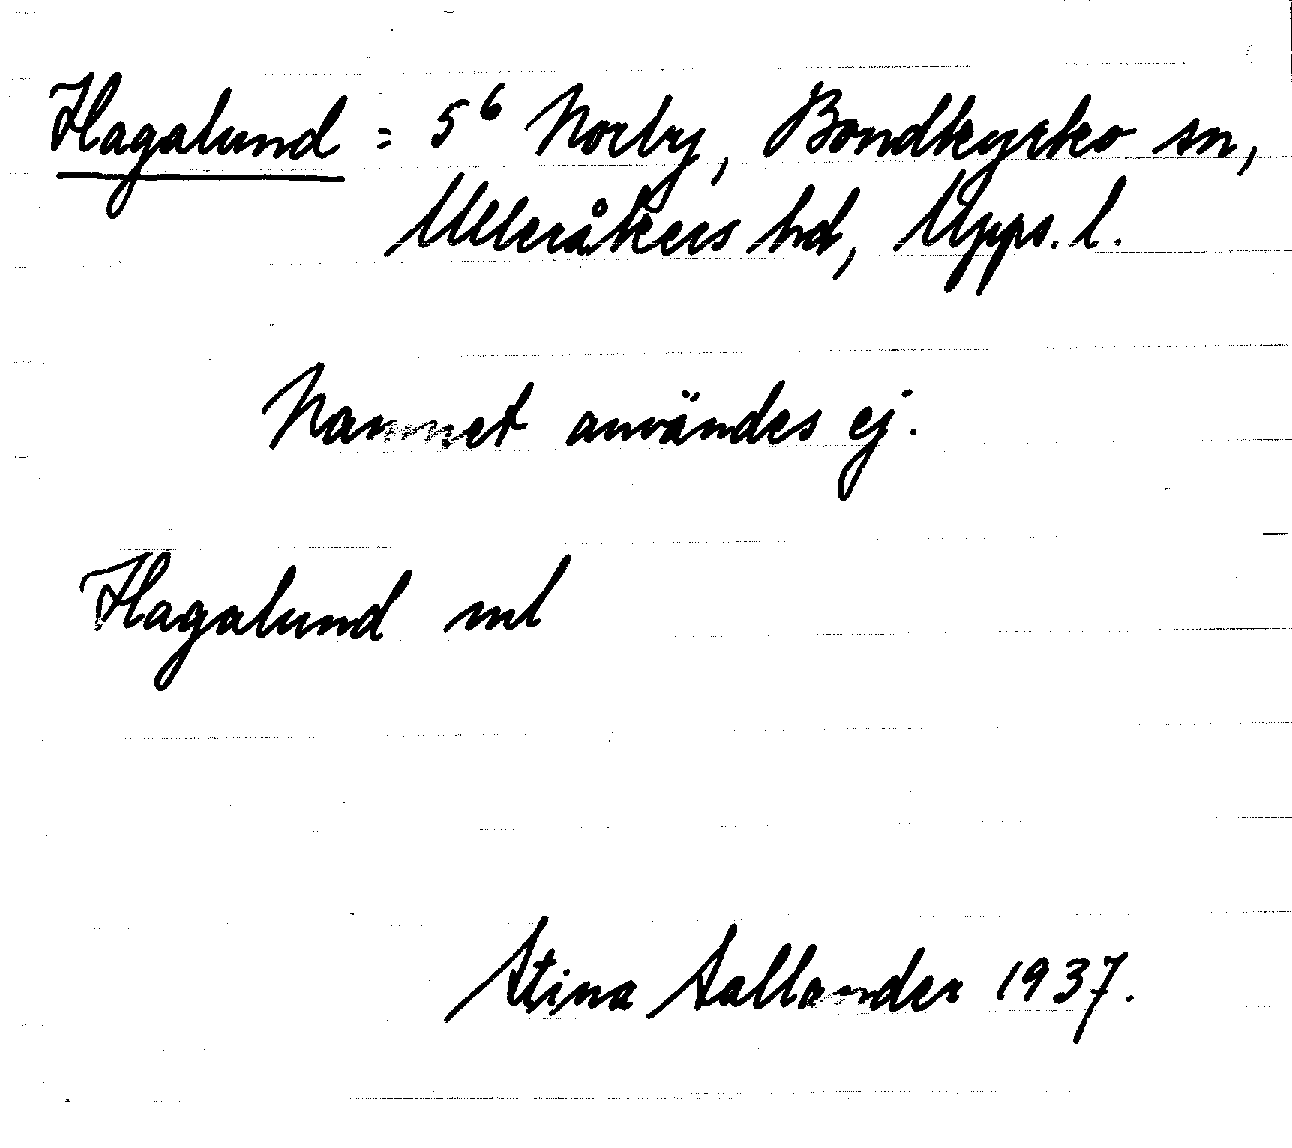 Hagalund = 5⁶ Norby, Bondkyrko sn,
Ulleråkers hd, Upps. l.
Namnet användes ej.
Hagalund ml
Stina Sallander 1937.